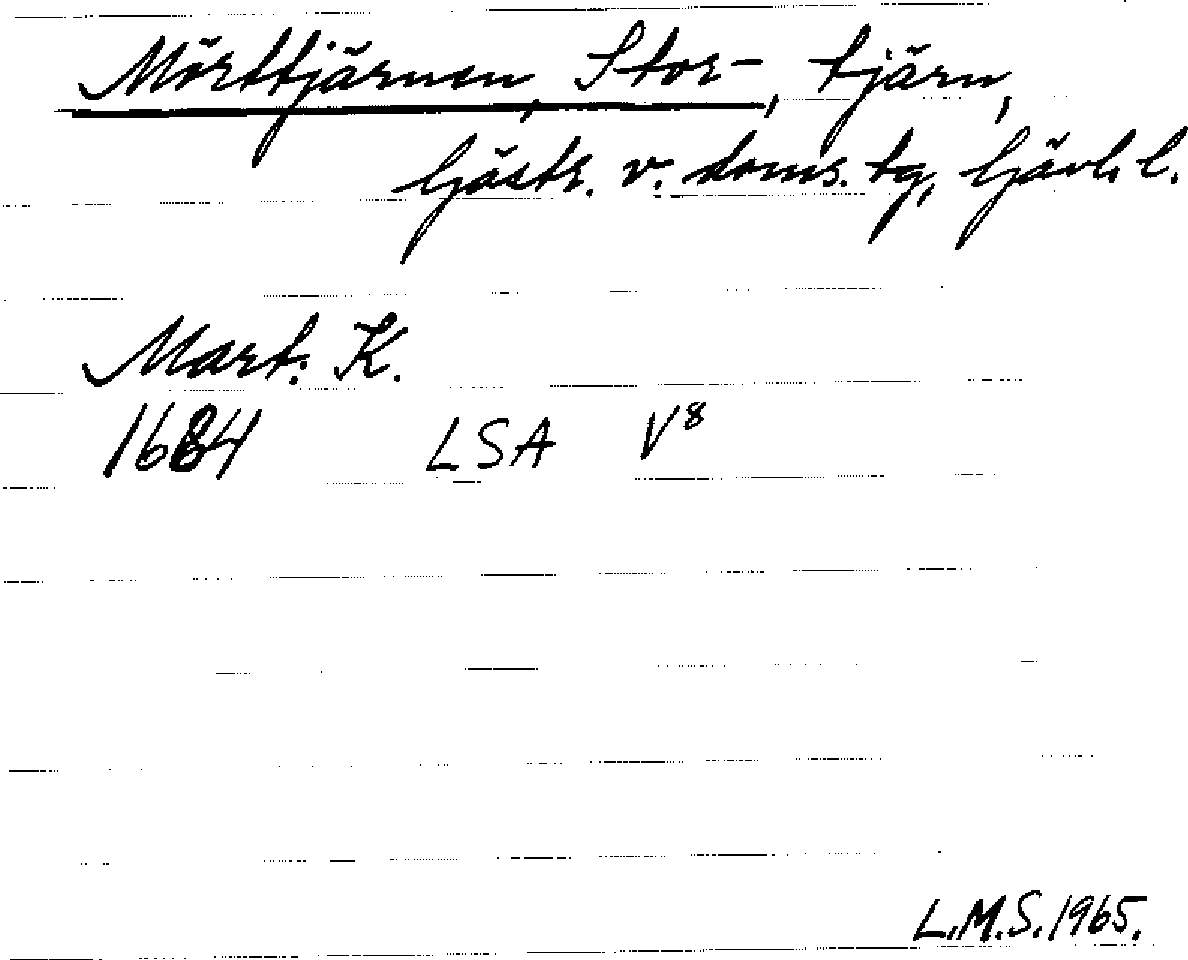 Mörttjärnen, Stor-, tjärn,
Gästr. v. doms. tg, Gävl. l.
Mart. K.
1684 LSA V⁸
L.M.S. 1965.